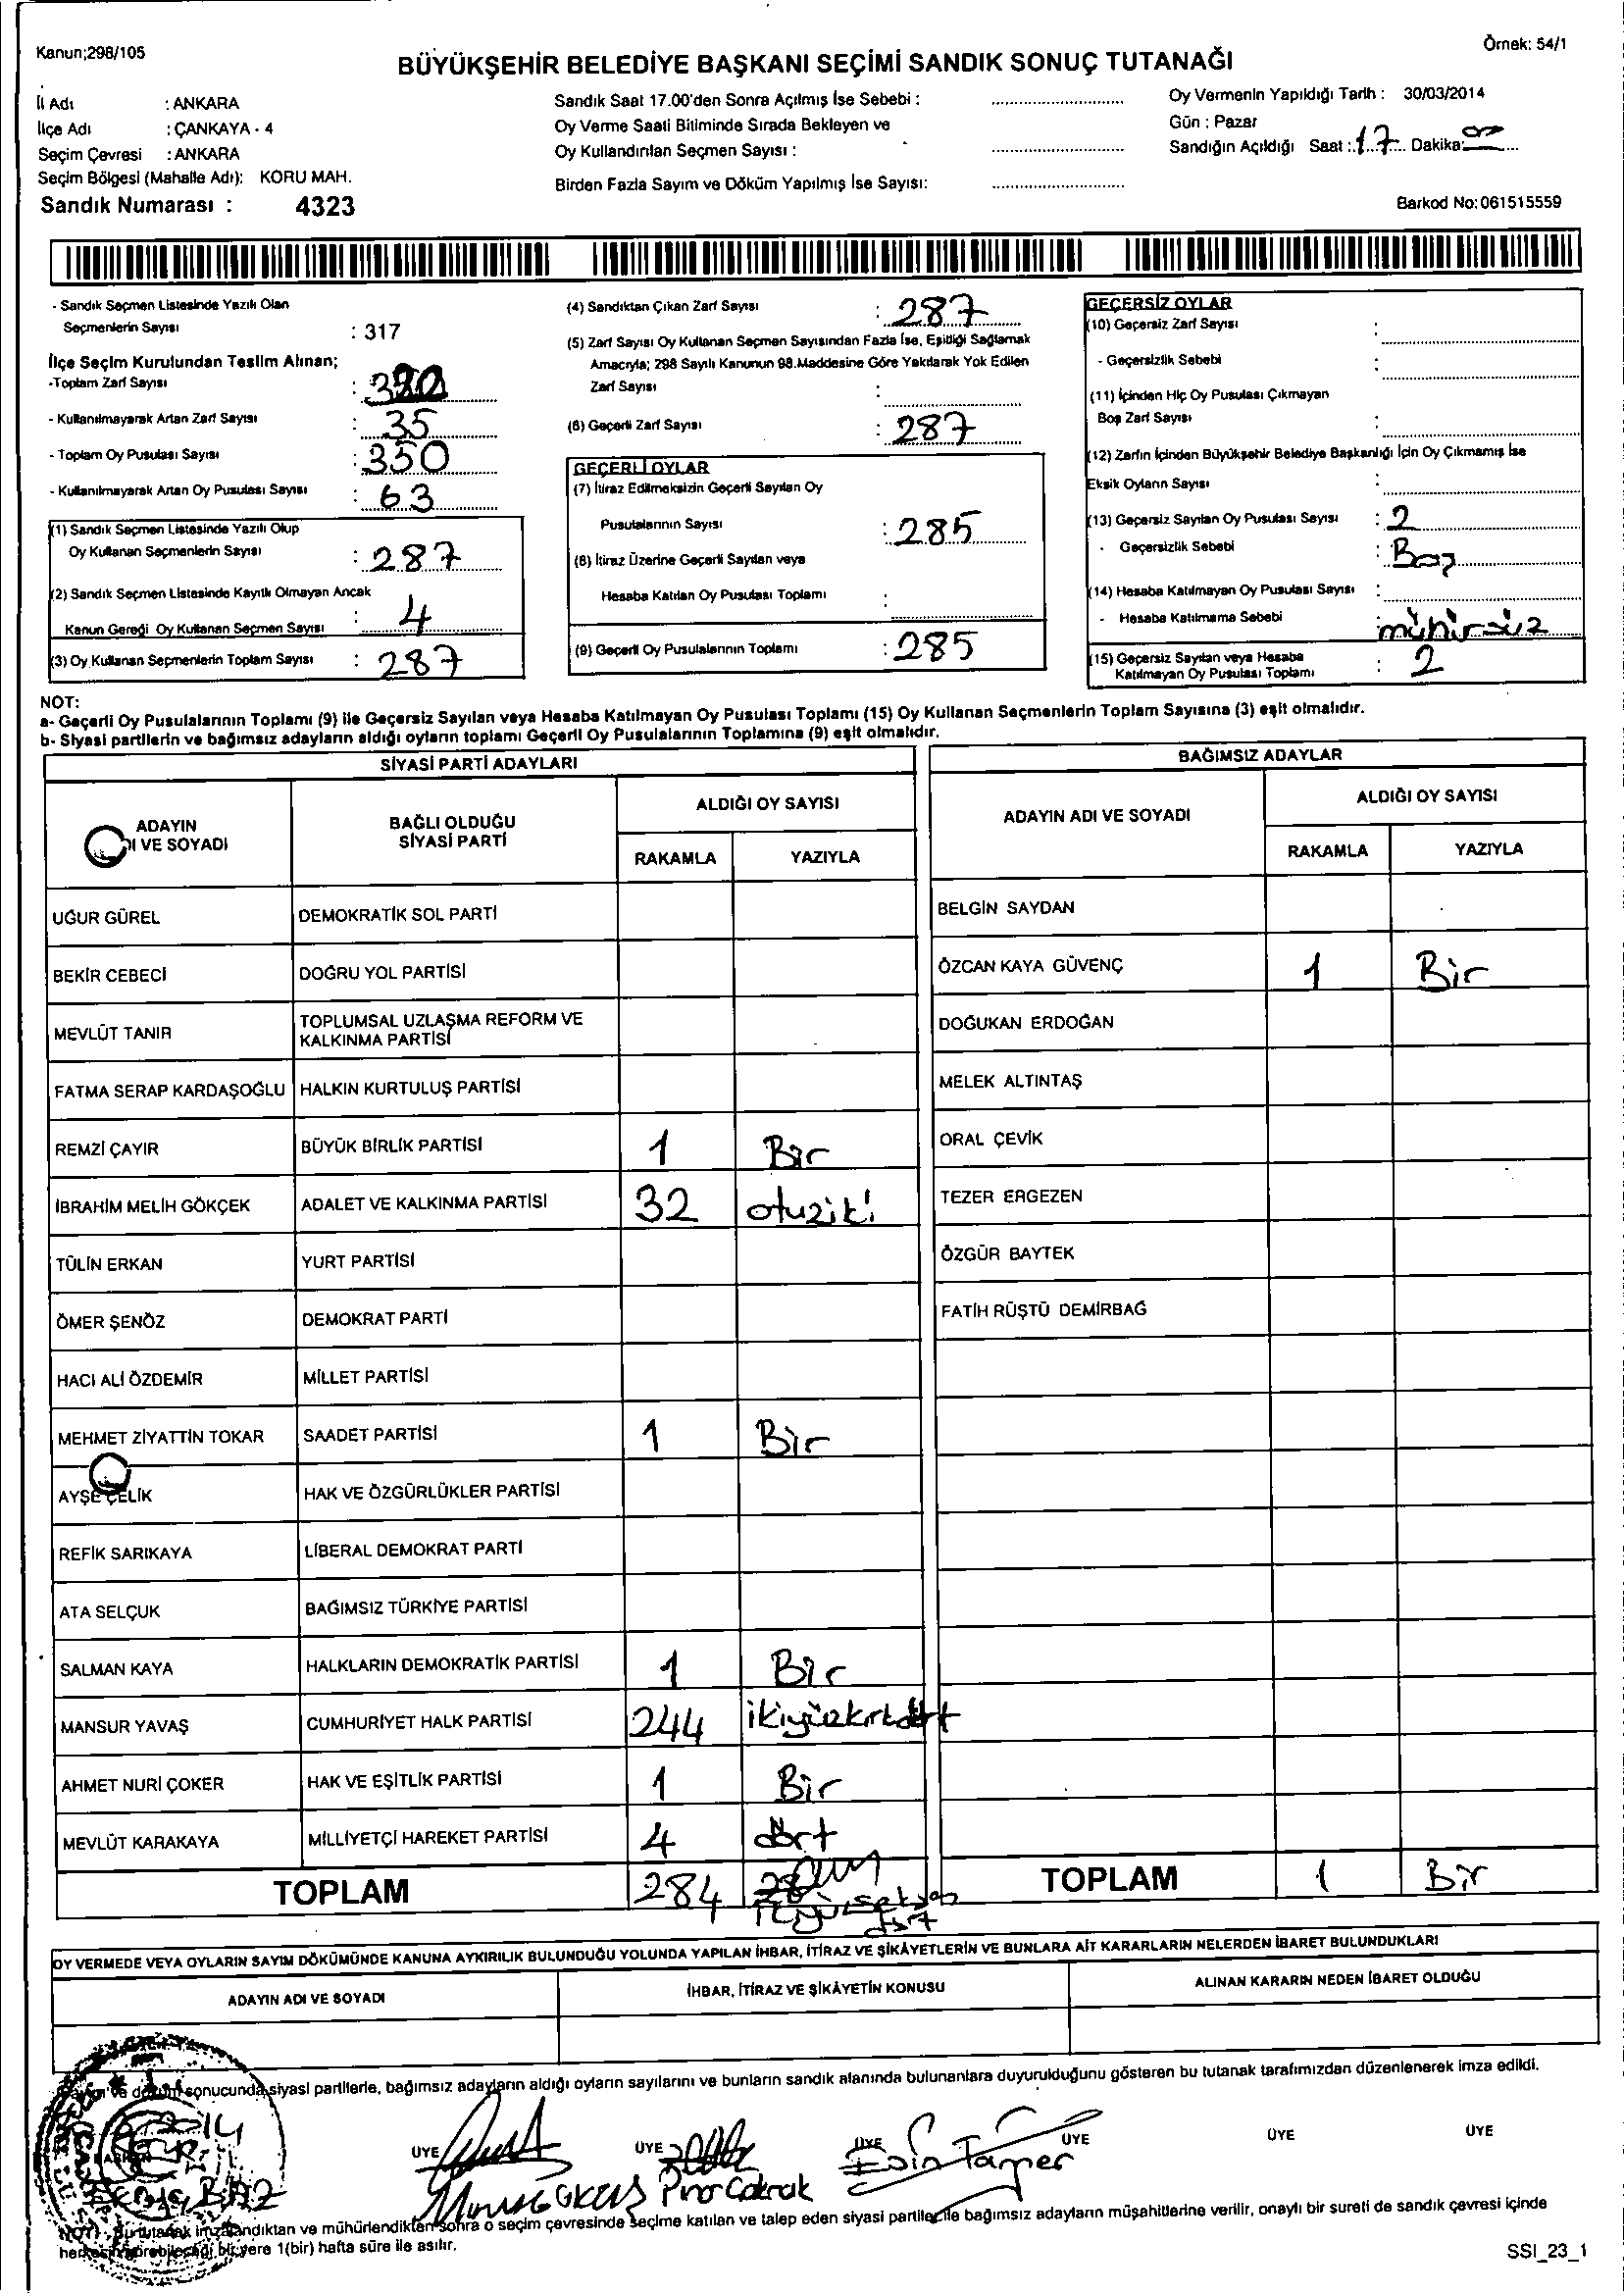 Kanun;298/105
Örnek: 54/1
BÜYÜKŞEHİR BELEDİYE BAŞKANI SEÇİMİ SANDIK SONUÇ TUTANAĞI
İl Adı : ANKARA
İlçe Adı : ÇANKAYA - 4
Seçim Çevresi : ANKARA
Seçim Bölgesi (Mahalle Adı): KORU MAH.
Sandık Numarası : 4323
Sandık Saat 17.00'den Sonra Açılmış İse Sebebi :
Oy Verme Saati Bitiminde Sırada Bekleyen ve
Oy Kullandırılan Seçmen Sayısı :
Birden Fazla Sayım ve Döküm Yapılmış İse Sayısı:
Oy Vermenin Yapıldığı Tarih : 30/03/2014
Gün : Pazar
Sandığın Açıldığı Saat : 17 Dakika:
Barkod No:061515559
- Sandık Seçmen Listesinde Yazılı Olan
Seçmenlerin Sayısı : 317
İlçe Seçim Kurulundan Teslim Alınan;
-Toplam Zarf Sayısı :
- Kullanılmayarak Artan Zarf Sayısı : 35
- Toplam Oy Pusulası Sayısı : 350
- Kullanılmayarak Artan Oy Pusulası Sayısı : 63
(1) Sandık Seçmen Listesinde Yazılı Olup
Oy Kullanan Seçmenlerin Sayısı : 287
(2) Sandık Seçmen Listesinde Kayıtlı Olmayan Ancak
Kanun Gereği Oy Kullanan Seçmen Sayısı : 4
(3) Oy Kullanan Seçmenlerin Toplam Sayısı : 287
(4) Sandıktan Çıkan Zarf Sayısı : 287
(5) Zarf Sayısı Oy Kullanan Seçmen Sayısından Fazla İse, Eşitliği Sağlamak
Amacıyla; 298 Sayılı Kanunun 98.Maddesine Göre Yakılarak Yok Edilen
Zarf Sayısı :
(6) Geçerli Zarf Sayısı : 287
GEÇERLİ OYLAR
(7) İtiraz Edilmeksizin Geçerli Sayılan Oy
Pusulalarının Sayısı : 285
(8) İtiraz Üzerine Geçerli Sayılan veya
Hesaba Katılan Oy Pusulası Toplamı :
(9) Geçerli Oy Pusulalarının Toplamı : 285
GEÇERSİZ OYLAR
(10) Geçersiz Zarf Sayısı :
- Geçersizlik Sebebi :
(11) İçinden Hiç Oy Pusulası Çıkmayan
Boş Zarf Sayısı :
(12) Zarfın İçinden Büyükşehir Belediye Başkanlığı İçin Oy Çıkmamış İse
Eksik Oyların Sayısı :
(13) Geçersiz Sayılan Oy Pusulası Sayısı : 2
- Geçersizlik Sebebi : Boş
(14) Hesaba Katılmayan Oy Pusulası Sayısı :
- Hesaba Katılmama Sebebi : mühürsüz
(15) Geçersiz Sayılan veya Hesaba
Katılmayan Oy Pusulası Toplamı : 2
NOT:
a- Geçerli Oy Pusulalarının Toplamı (9) ile Geçersiz Sayılan veya Hesaba Katılmayan Oy Pusulası Toplamı (15) Oy Kullanan Seçmenlerin Toplam Sayısına (3) eşit olmalıdır.
b- Siyasi partilerin ve bağımsız adayların aldığı oyların toplamı Geçerli Oy Pusulalarının Toplamına (9) eşit olmalıdır.
SİYASİ PARTİ ADAYLARI
ADAYIN
DI VE SOYADI
BAĞLI OLDUĞU
SİYASİ PARTİ
ALDIĞI OY SAYISI
RAKAMLA YAZIYLA
UĞUR GÜREL DEMOKRATİK SOL PARTİ
BEKİR CEBECİ DOĞRU YOL PARTİSİ
MEVLÜT TANIR TOPLUMSAL UZLAŞMA REFORM VE
KALKINMA PARTİSİ
FATMA SERAP KARDAŞOĞLU HALKIN KURTULUŞ PARTİSİ
REMZİ ÇAYIR BÜYÜK BİRLİK PARTİSİ 1 Bir
İBRAHİM MELİH GÖKÇEK ADALET VE KALKINMA PARTİSİ 32 otuziki
TÜLİN ERKAN YURT PARTİSİ
ÖMER ŞENÖZ DEMOKRAT PARTİ
HACI ALİ ÖZDEMİR MİLLET PARTİSİ
MEHMET ZİYATTİN TOKAR SAADET PARTİSİ 1 Bir
AYŞE ÇELİK HAK VE ÖZGÜRLÜKLER PARTİSİ
REFİK SARIKAYA LİBERAL DEMOKRAT PARTİ
ATA SELÇUK BAĞIMSIZ TÜRKİYE PARTİSİ
SALMAN KAYA HALKLARIN DEMOKRATİK PARTİSİ 1 Bir
MANSUR YAVAŞ CUMHURİYET HALK PARTİSİ 244 ikiyüzkırkdört
AHMET NURİ ÇOKER HAK VE EŞİTLİK PARTİSİ 1 Bir
MEVLÜT KARAKAYA MİLLİYETÇİ HAREKET PARTİSİ 4 dört
TOPLAM 284
BAĞIMSIZ ADAYLAR
ADAYIN ADI VE SOYADI
ALDIĞI OY SAYISI
RAKAMLA YAZIYLA
BELGİN SAYDAN
ÖZCAN KAYA GÜVENÇ 1 Bir
DOĞUKAN ERDOĞAN
MELEK ALTINTAŞ
ORAL ÇEVİK
TEZER ERGEZEN
ÖZGÜR BAYTEK
FATİH RÜŞTÜ DEMİRBAĞ
TOPLAM 1 Bir
OY VERMEDE VEYA OYLARIN SAYIM DÖKÜMÜNDE KANUNA AYKIRILIK BULUNDUĞU YOLUNDA YAPILAN İHBAR, İTİRAZ VE ŞİKÂYETLERİN VE BUNLARA AİT KARARLARIN NELERDEN İBARET BULUNDUKLARI
ADAYIN ADI VE SOYADI İHBAR, İTİRAZ VE ŞİKÂYETİN KONUSU ALINAN KARARIN NEDEN İBARET OLDUĞU
sonucunda siyasi partilerle, bağımsız adayların aldığı oyların sayılarını ve bunların sandık alanında bulunanlara duyurulduğunu gösteren bu tutanak tarafımızdan düzenlenerek imza edildi.
ÜYE ÜYE ÜYE ÜYE ÜYE ÜYE
2014
Esin Tamer
NOT: Bu tutanak imzalandıktan ve mühürlendikten sonra o seçim çevresinde seçime katılan ve talep eden siyasi partiler ile bağımsız adayların müşahitlerine verilir, onaylı bir sureti de sandık çevresi içinde
herkesin görebileceği bir yere 1(bir) hafta süre ile asılır.
SSI_23_1